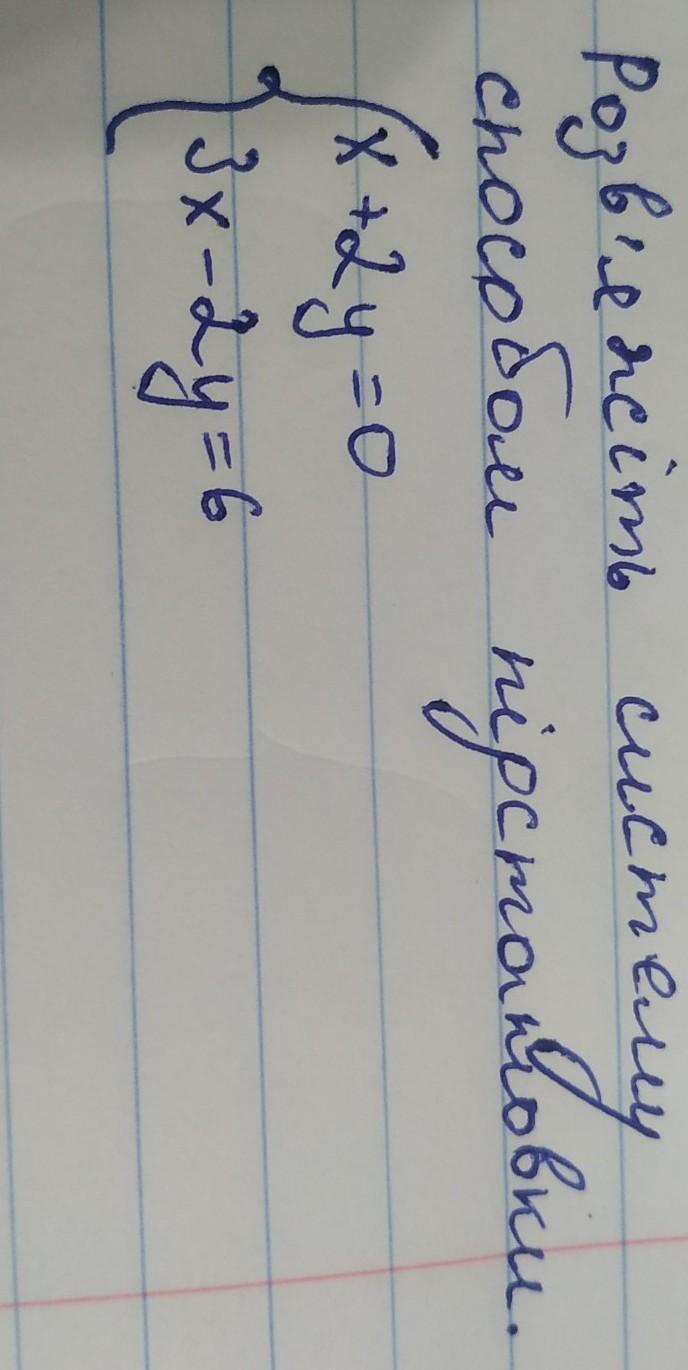 Розв'яжіть систему
способом підстановки.
x + 2y = 0
3x - 2y = 6